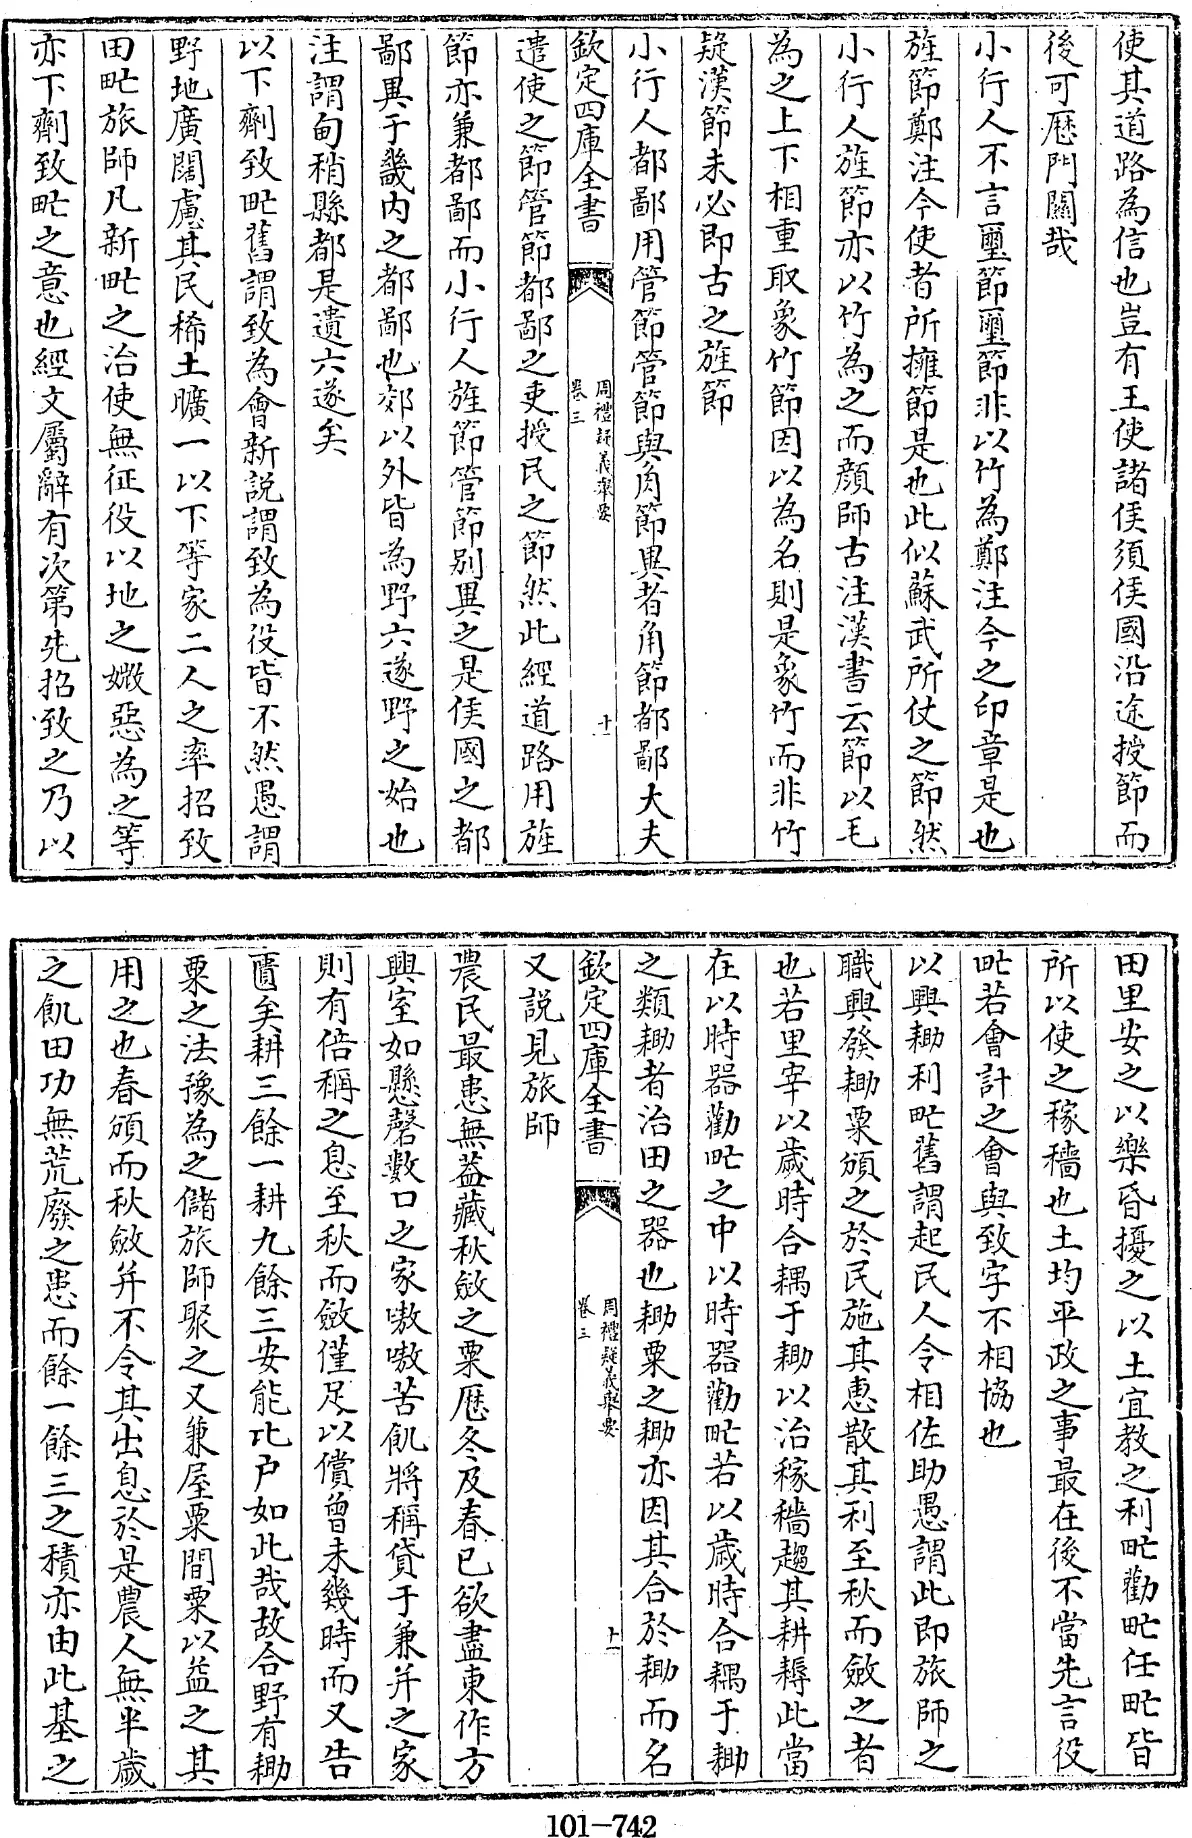 使其道路為信也豈有王使諸侯須侯國沿途授節而
後可厯門關哉
小行人不言璽節璽節非以竹為鄭注今之印章是也
旌節鄭注今使者所擁節是也此似蘇武所仗之節然
小行人旌節亦以竹為之而顔師古注漢書云節以毛
為之上下相重取象竹節因以為名則是象竹而非竹
疑漢節未必即古之旌節
小行人都鄙用管節管節與角節異者角節都鄙大夫
欽定四庫全書
周禮疑義舉要
卷三
十
遣使之節管節都鄙之吏授民之節然此經道路用旌
節亦兼都鄙而小行人旌節管節別異之是侯國之都
鄙異于畿内之都鄙也郊以外皆為野六遂野之始也
注謂甸稍縣都是遺六遂矣
以下劑致甿舊謂致為會新説謂致為役皆不然愚謂
野地廣闊慮其民稀土曠一以下等家二人之率招致
田甿旅師凡新甿之治使無征役以地之媺惡為之等
亦下劑致甿之意也經文屬辭有次第先招致之乃以
田里安之以樂昏擾之以土宜教之利甿勸甿任甿皆
所以使之稼穡也土均平政之事最在後不當先言役
甿若會計之會與致字不相協也
以興耡利甿舊謂起民人令相佐助愚謂此即旅師之
職興發耡粟頒之於民施其惠散其利至秋而斂之者
也若里宰以歲時合耦于耡以治稼穡趨其耕耨此當
在以時器勸甿之中以時器勸甿若以歲時合耦于耡
之類耡者治田之器也耡粟之耡亦因其合於耡而名
欽定四庫全書
周禮疑義舉要
卷三
十一
又説見旅師
農民最患無葢藏秋斂之粟厯冬及春已欲盡東作方
興室如懸磬數口之家嗷嗷苦飢將稱貸于兼并之家
則有倍稱之息至秋而斂僅足以償曾未幾時而又告
匱矣耕三餘一耕九餘三安能比户如此哉故合野有耡
粟之法豫為之儲旅師聚之又兼屋粟間粟以益之其
用之也春頒而秋斂并不令其出息於是農人無半歲
之飢田功無荒廢之患而餘一餘三之積亦由此基之
101-742